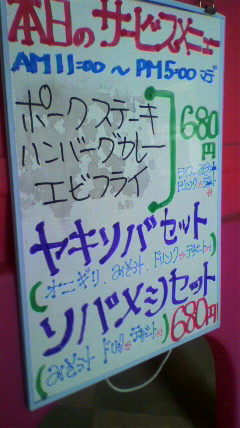 本日のサービスメニュー
AM11:00 〜 PM5:00まで
ポークステーキ
ハンバーグカレー
エビフライ
680円
ライス、みそ汁
ドリンク
ヤキソバセット
(オニギリ、みそ汁、ドリンク or デザート付)
ソバメシセット
(みそ汁、ドリンク or デザート付)
680円